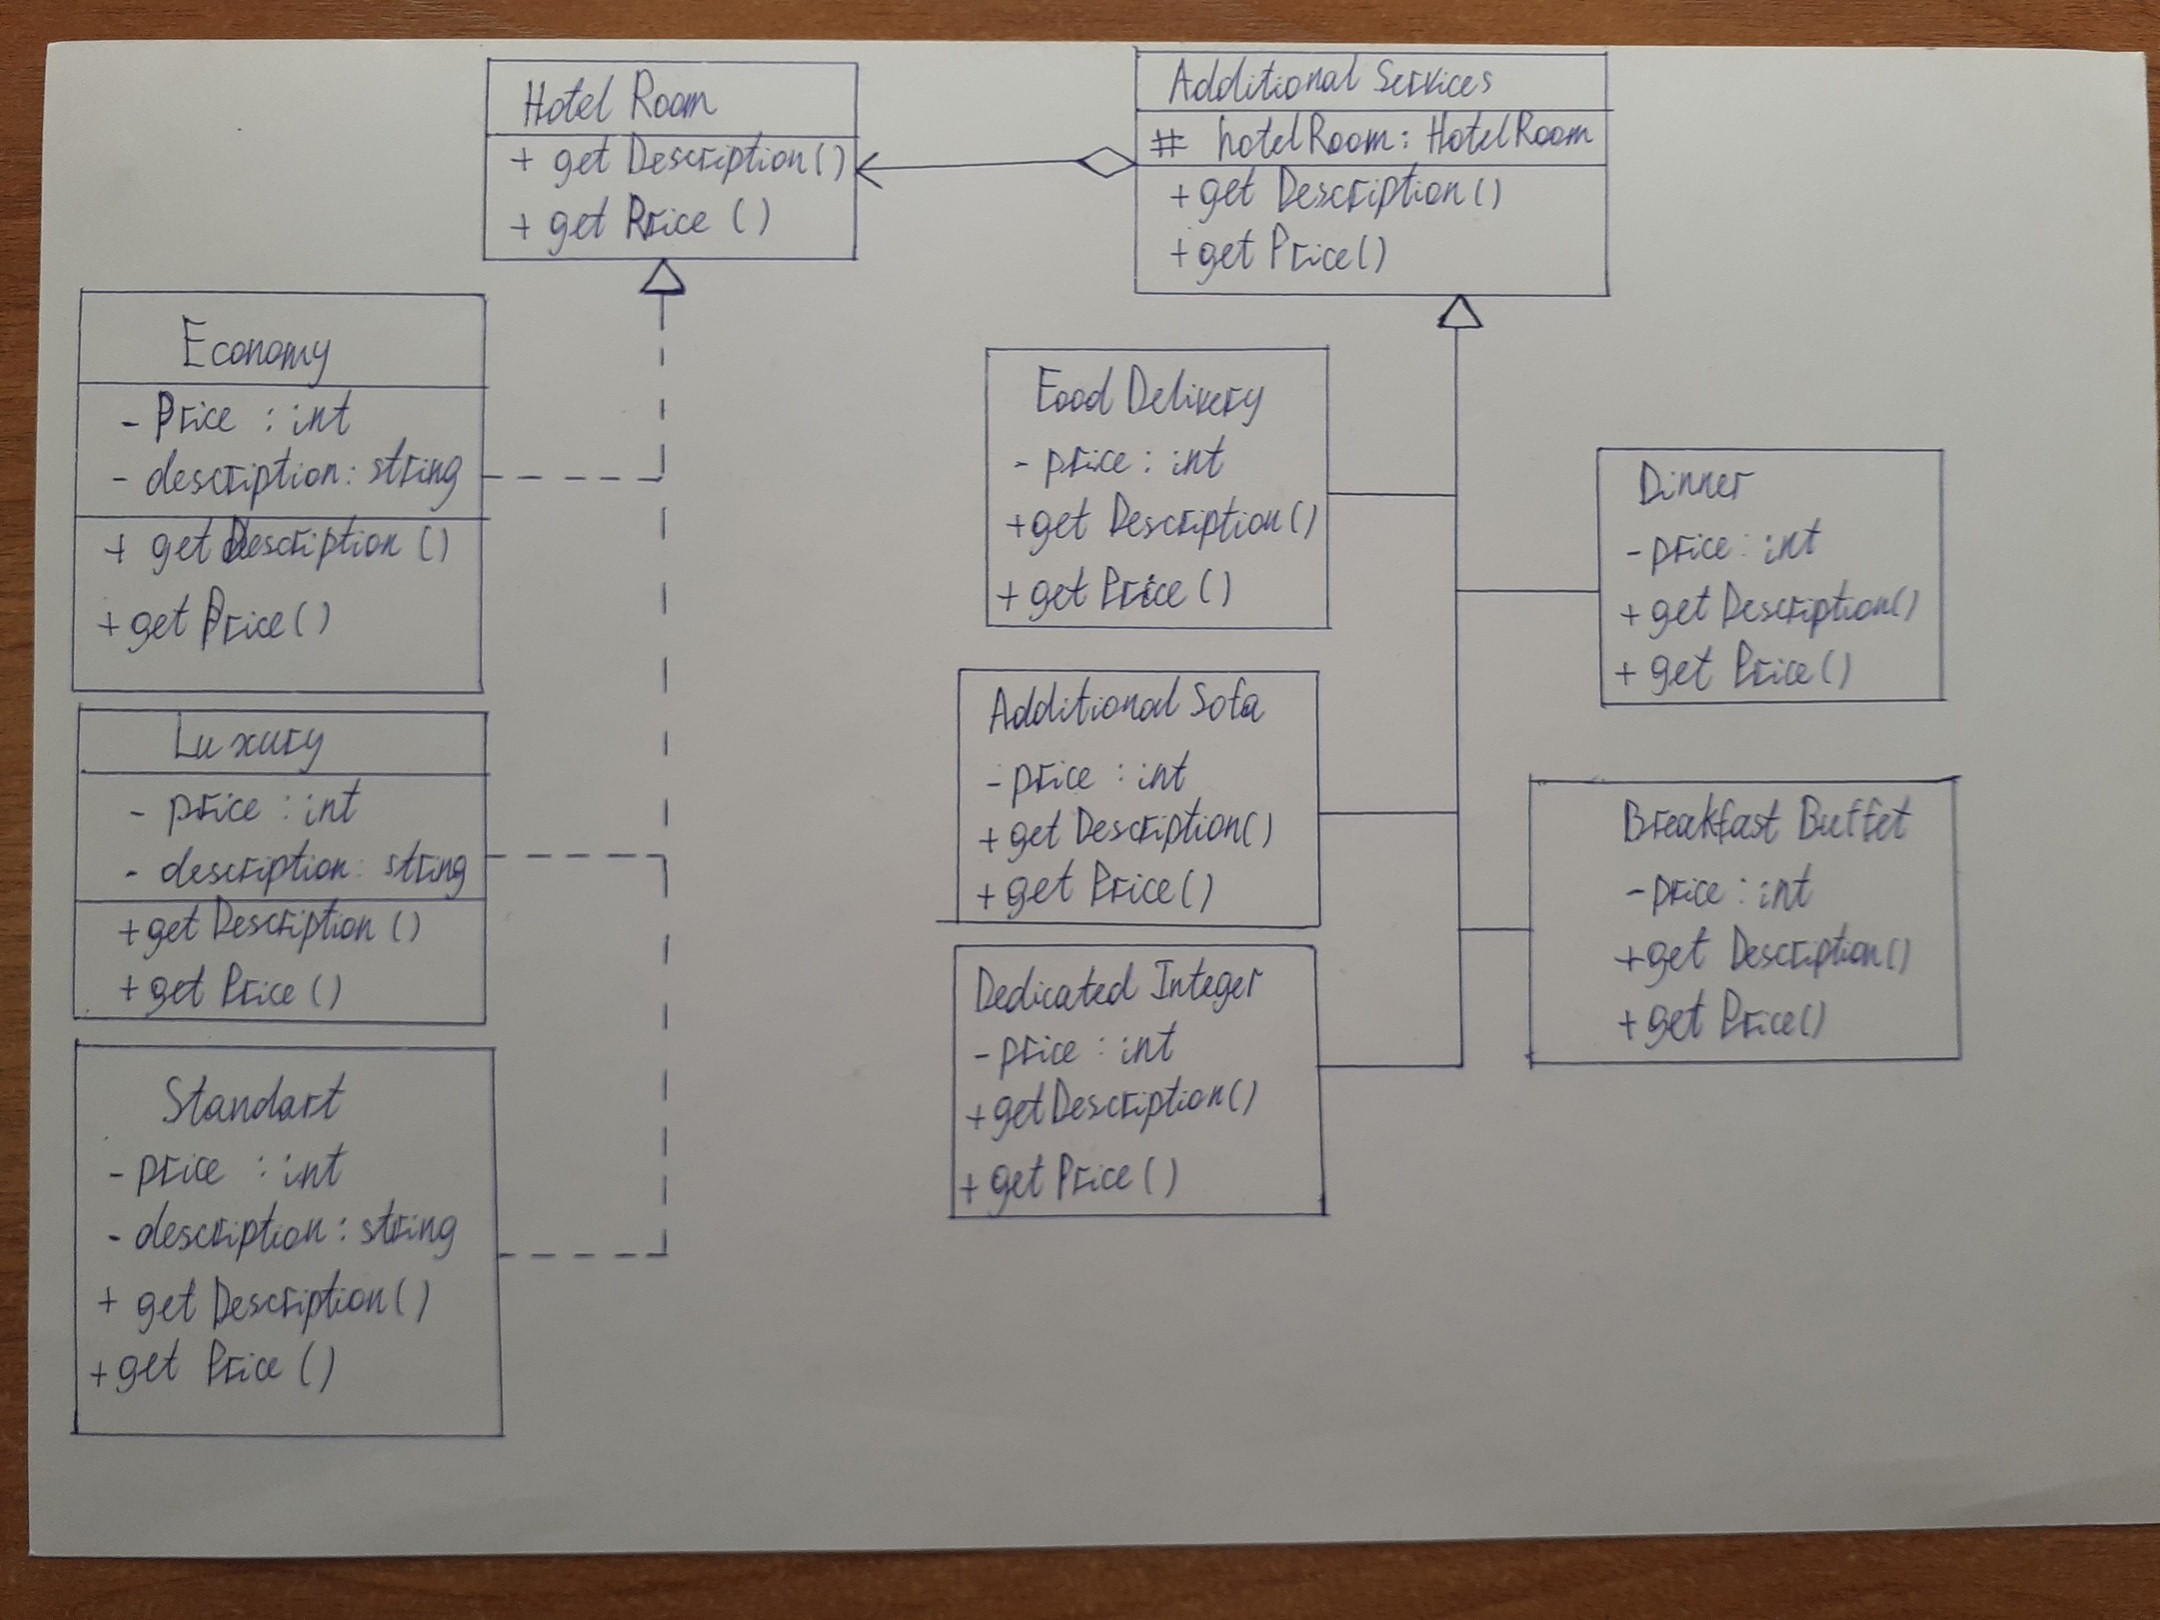 Hotel Room
+ get Description()
+ get Price ()
Additional Services
# hotelRoom: HotelRoom
+ get Description()
+ get Price()
Economy
- Price : int
- description: string
+ get Description ()
+ get Price()
Luxury
- price : int
- description: string
+ get Description ()
+ get Price ()
Standart
- price : int
- description: string
+ get Description()
+ get Price ()
Food Delivery
- price : int
+ get Description()
+ get Price ()
Additional Sofa
- price : int
+ get Description()
+ get Price()
Dedicated Integer
- price : int
+ getDescription()
+ get Price()
Dinner
- price : int
+ get Description()
+ get Price()
Breakfast Buffet
- price : int
+ get Description()
+ get Price()